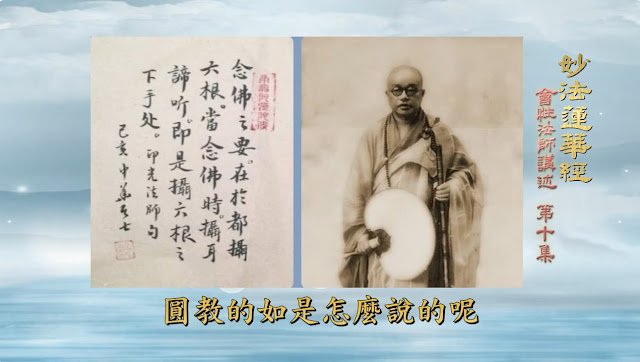 妙法蓮華經
會性法師講述 第十集
念佛之要。在於都攝
六根。當念佛時。攝耳
諦听。即是攝六根之
下手处。印光法師句
己亥
圓教的如是怎麼說的呢